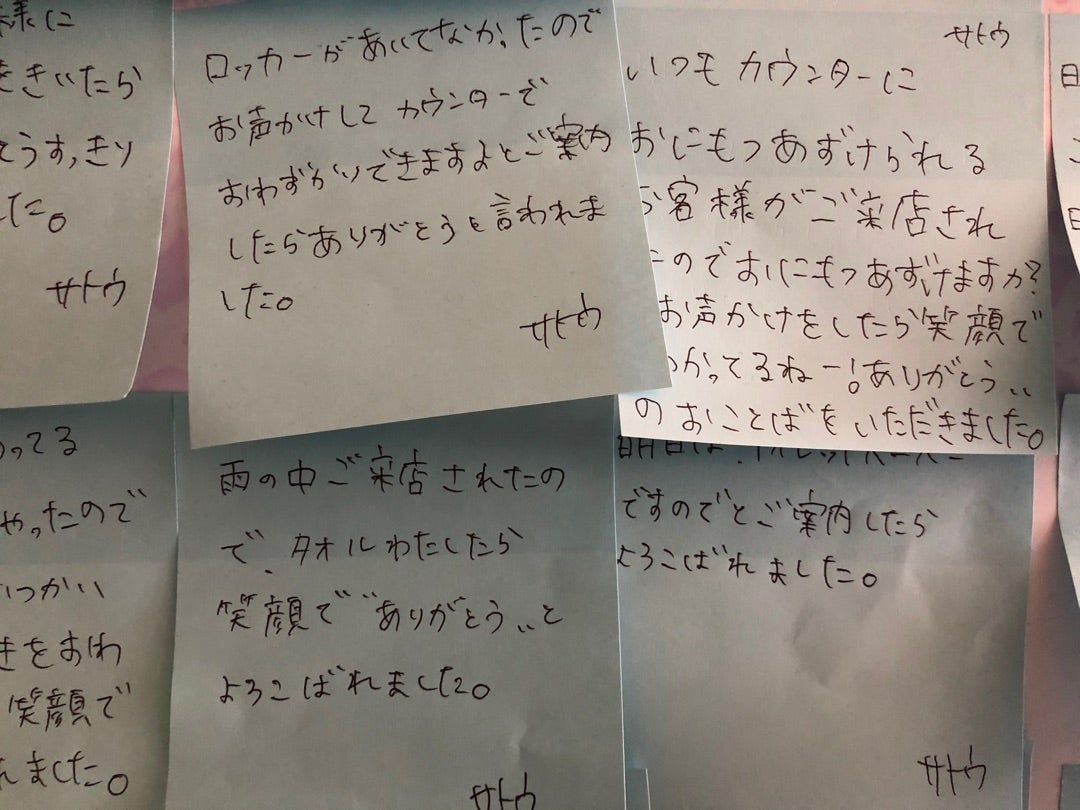 様に
をきいたら
うす,きり
した。
サトウ
ロッカーがあいてなかったので
お声かけして カウンターで
おわずかりできますよとご案内
したらありがとうと言われま
した。
サトウ
サトウ
いつもカウンターに
おにもつあずけられる
お客様がご来店され
たのでおにもつあずけますか?
お声かけをしたら笑顔で
わかってるねー!ありがとう"
のおことばをいただきました。
日
日
ってる
やったので
つかい
きをおわ
笑顔で
れました。
雨の中ご来店されたの
で、タオルわたしたら
笑顔で"ありがとう"と
よろこばれました。
サトウ
ですのでとご案内したら
よろこばれました。
サトウ